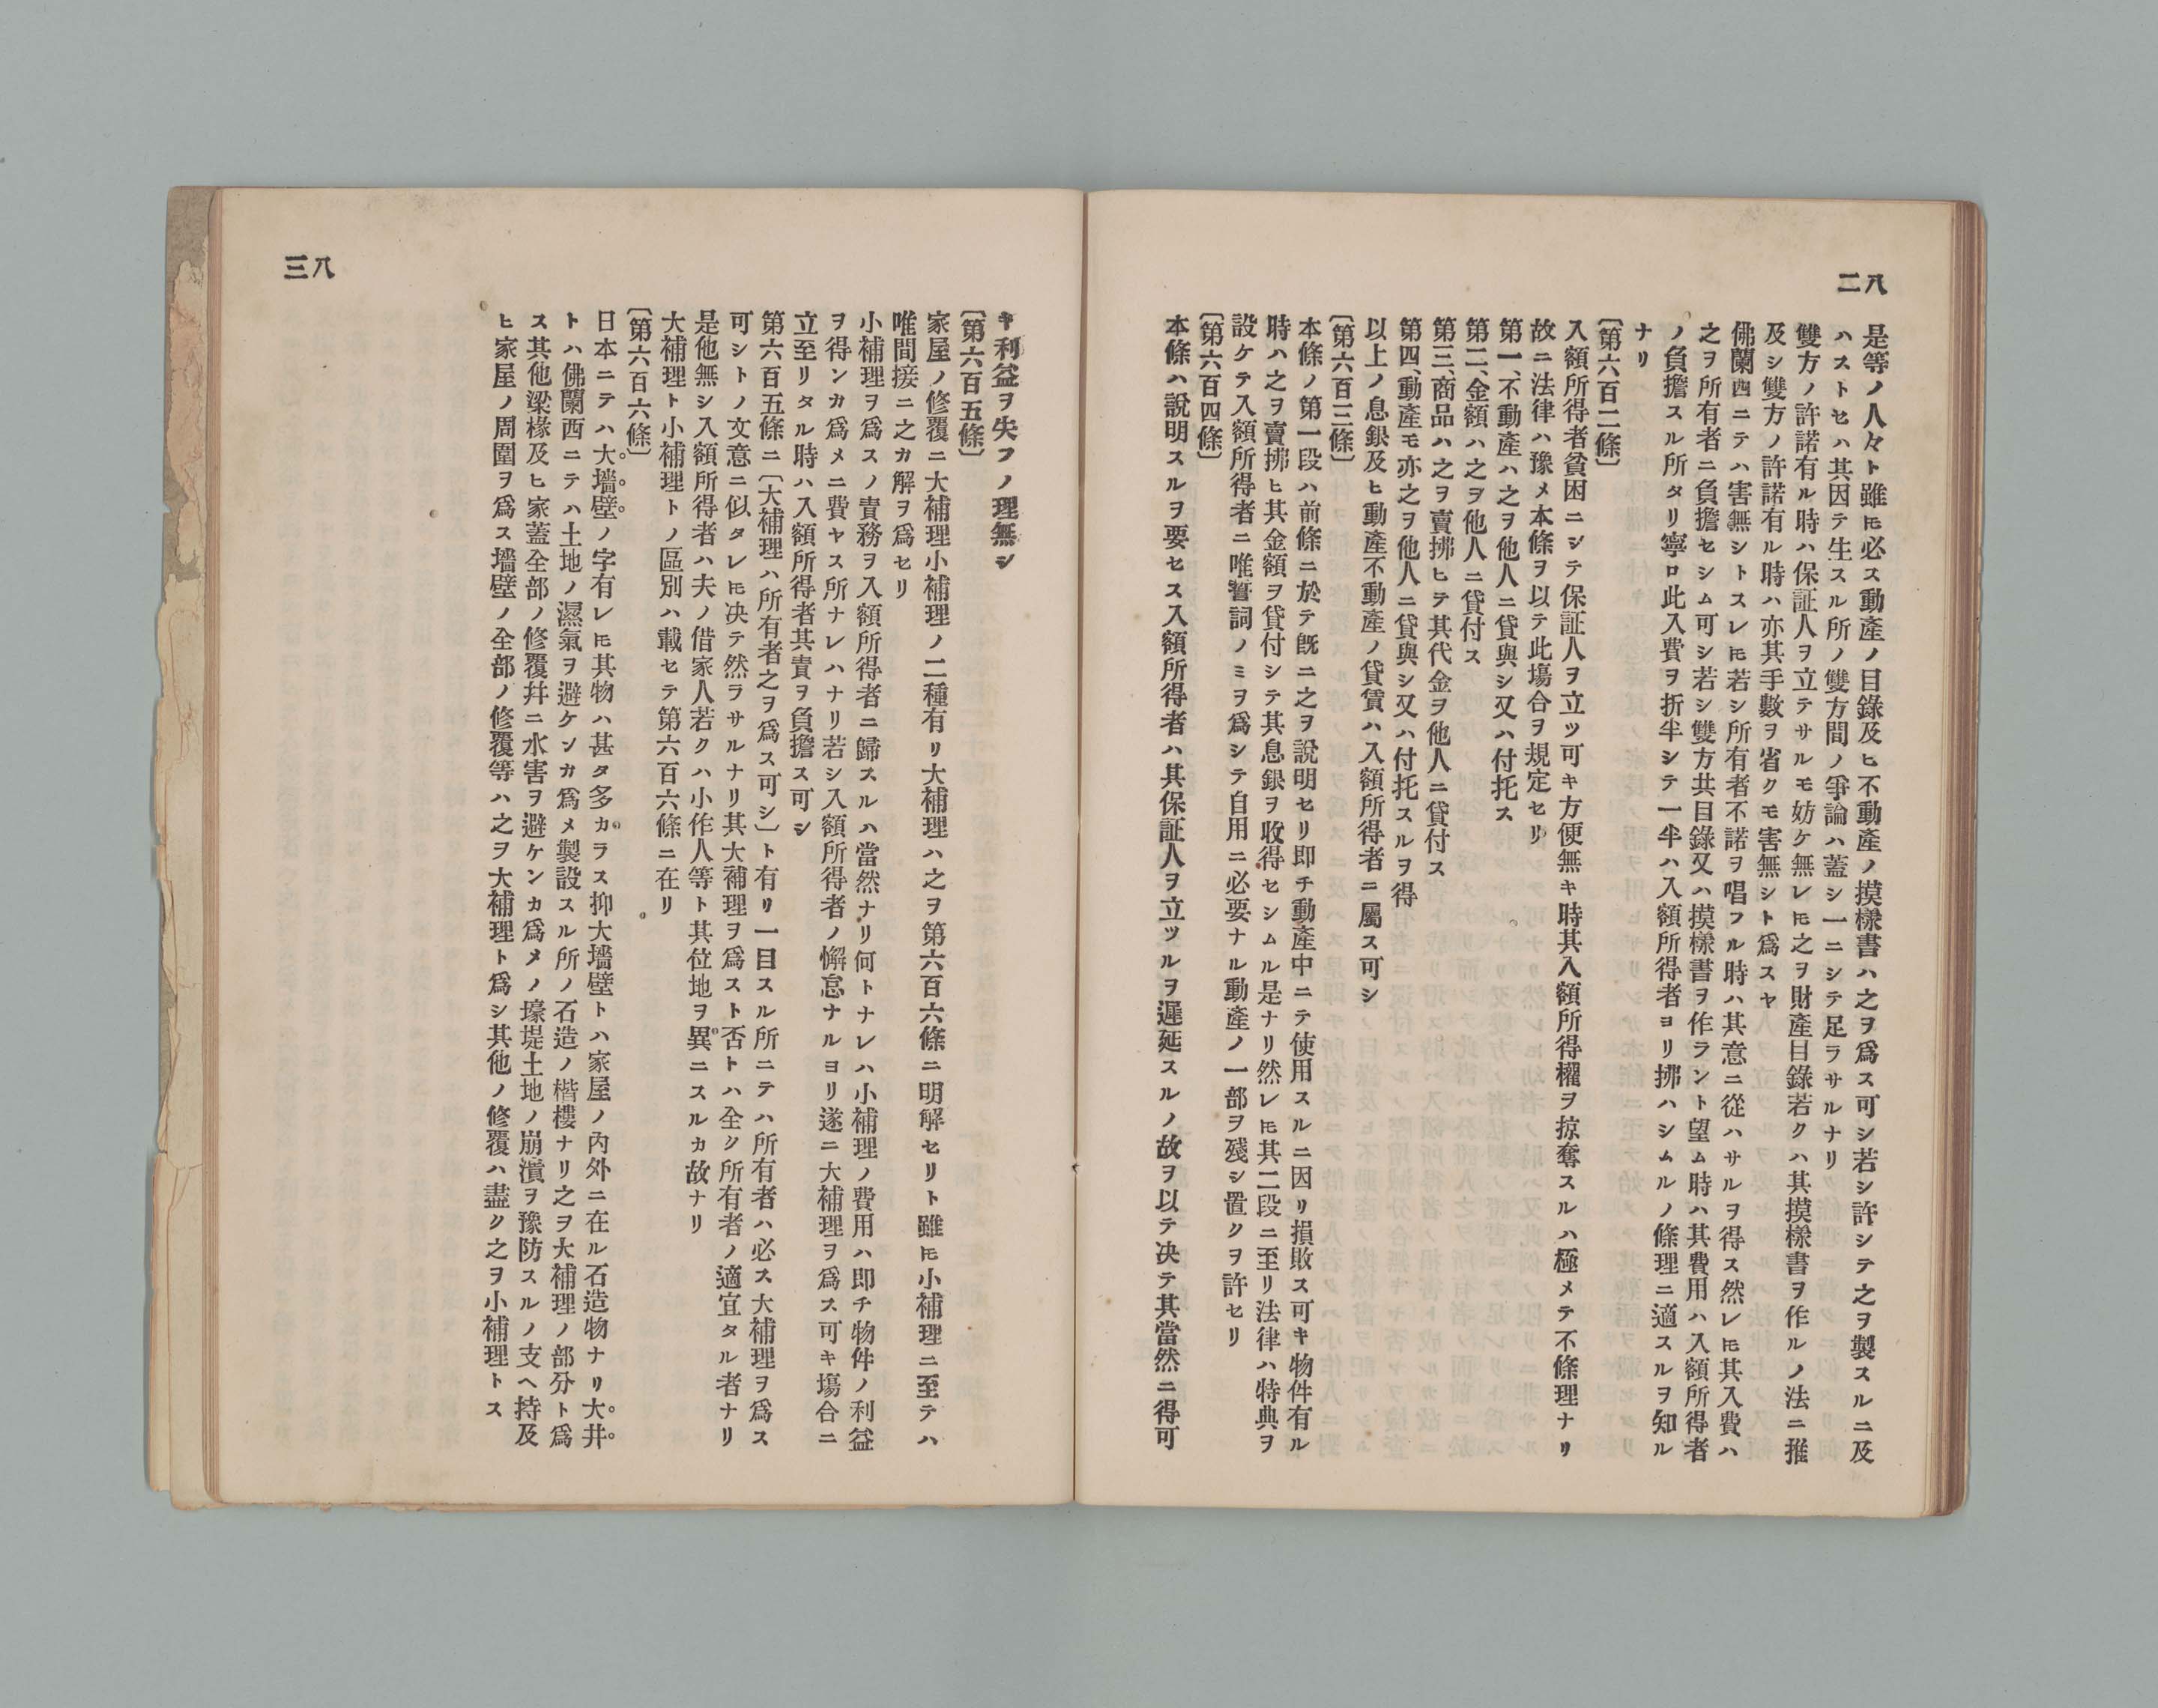 二八
是等ノ人々ト雖ㇳモ必ス動產ノ目錄及ヒ不動產ノ摸樣書ハ之ヲ爲ス可シ若シ許シテ之ヲ製スルニ及
ハストセハ其因テ生スル所ノ雙方間ノ爭論ハ蓋シ一ニシテ足ラサルナリ
雙方ノ許諾有ル時ハ保証人ヲ立テサルモ妨ケ無レㇳモ之ヲ財產目錄若クハ其摸樣書ヲ作ルノ法ニ推
及シ雙方ノ許諾有ル時ハ亦其手數ヲ省クモ害無シト爲スヤ
佛蘭西ニテハ害無シトスレㇳモ若シ所有者不諾ヲ唱フル時ハ其意ニ從ハサルヲ得ス然レㇳモ其入費ハ
之ヲ所有者ニ負擔セシム可シ若シ雙方共目錄又ハ摸樣書ヲ作ラント望ム時ハ其費用ハ入額所得者
ノ負擔スル所タリ寧ロ此入費ヲ折半シテ一半ハ入額所得者ヨリ拂ハシムルノ條理ニ適スルヲ知ル
ナリ
〔第六百二條〕
入額所得者貧困ニシテ保証人ヲ立ツ可キ方便無キ時其入額所得權ヲ掠奪スルハ極メテ不條理ナリ
故ニ法律ハ豫メ本條ヲ以テ此塲合ヲ規定セリ
第一、不動產ハ之ヲ他人ニ貸與シ又ハ付托ス
第二、金額ハ之ヲ他人ニ貸付ス
第三、商品ハ之ヲ賣拂ヒテ其代金ヲ他人ニ貸付ス
第四、動產モ亦之ヲ他人ニ貸與シ又ハ付托スルヲ得
以上ノ息銀及ヒ動產不動產ノ貸賃ハ入額所得者ニ屬ス可シ
〔第六百三條〕
本條ノ第一段ハ前條ニ於テ既ニ之ヲ說明セリ即チ動產中ニテ使用スルニ因リ損敗ス可キ物件有ル
時ハ之ヲ賣拂ヒ其金額ヲ貸付シテ其息銀ヲ收得セシムル是ナリ然レㇳモ其二段ニ至リ法律ハ特典ヲ
設ケテ入額所得者ニ唯誓詞ノミヲ爲シテ自用ニ必要ナル動產ノ一部ヲ殘シ置クヲ許セリ
〔第六百四條〕
本條ハ說明スルヲ要セス入額所得者ハ其保証人ヲ立ツルヲ遲延スルノ故ヲ以テ决テ其當然ニ得可
三八
キ利益ヲ失フノ理無シ
〔第六百五條〕
家屋ノ修覆ニ大補理小補理ノ二種有リ大補理ハ之ヲ第六百六條ニ明解セリト雖ㇳモ小補理ニ至テハ
唯間接ニ之カ解ヲ爲セリ
小補理ヲ爲スノ責務ヲ入額所得者ニ歸スルハ當然ナリ何トナレハ小補理ノ費用ハ即チ物件ノ利益
ヲ得ンカ爲メニ費ヤス所ナレハナリ若シ入額所得者ノ懈怠ナルヨリ遂ニ大補理ヲ爲ス可キ塲合ニ
立至リタル時ハ入額所得者其責ヲ負擔ス可シ
第六百五條ニ〔大補理ハ所有者之ヲ爲ス可シ〕ト有リ一目スル所ニテハ所有者ハ必ス大補理ヲ爲ス
可シトノ文意ニ似タレㇳモ决テ然ラサルナリ其大補理ヲ爲スト否トハ全ク所有者ノ適宜タル者ナリ
是他無シ入額所得者ハ夫ノ借家人若クハ小作人等ト其位地ヲ異ニスルカ故ナリ
大補理ト小補理トノ區別ハ載セテ第六百六條ニ在リ
〔第六百六條〕
日本ニテハ大墻壁ノ字有レㇳモ其物ハ甚タ多カラス抑大墻壁トハ家屋ノ內外ニ在ル石造物ナリ大井
トハ佛蘭西ニテハ土地ノ濕氣ヲ避ケンカ爲メ製設スル所ノ石造ノ楷樓ナリ之ヲ大補理ノ部分ト爲
ス其他梁椽及ヒ家蓋全部ノ修覆幷ニ水害ヲ避ケンカ爲メノ壕堤土地ノ崩潰ヲ豫防スルノ支ヘ持及
ヒ家屋ノ周圍ヲ爲ス墻壁ノ全部ノ修覆等ハ之ヲ大補理ト爲シ其他ノ修覆ハ盡ク之ヲ小補理トス